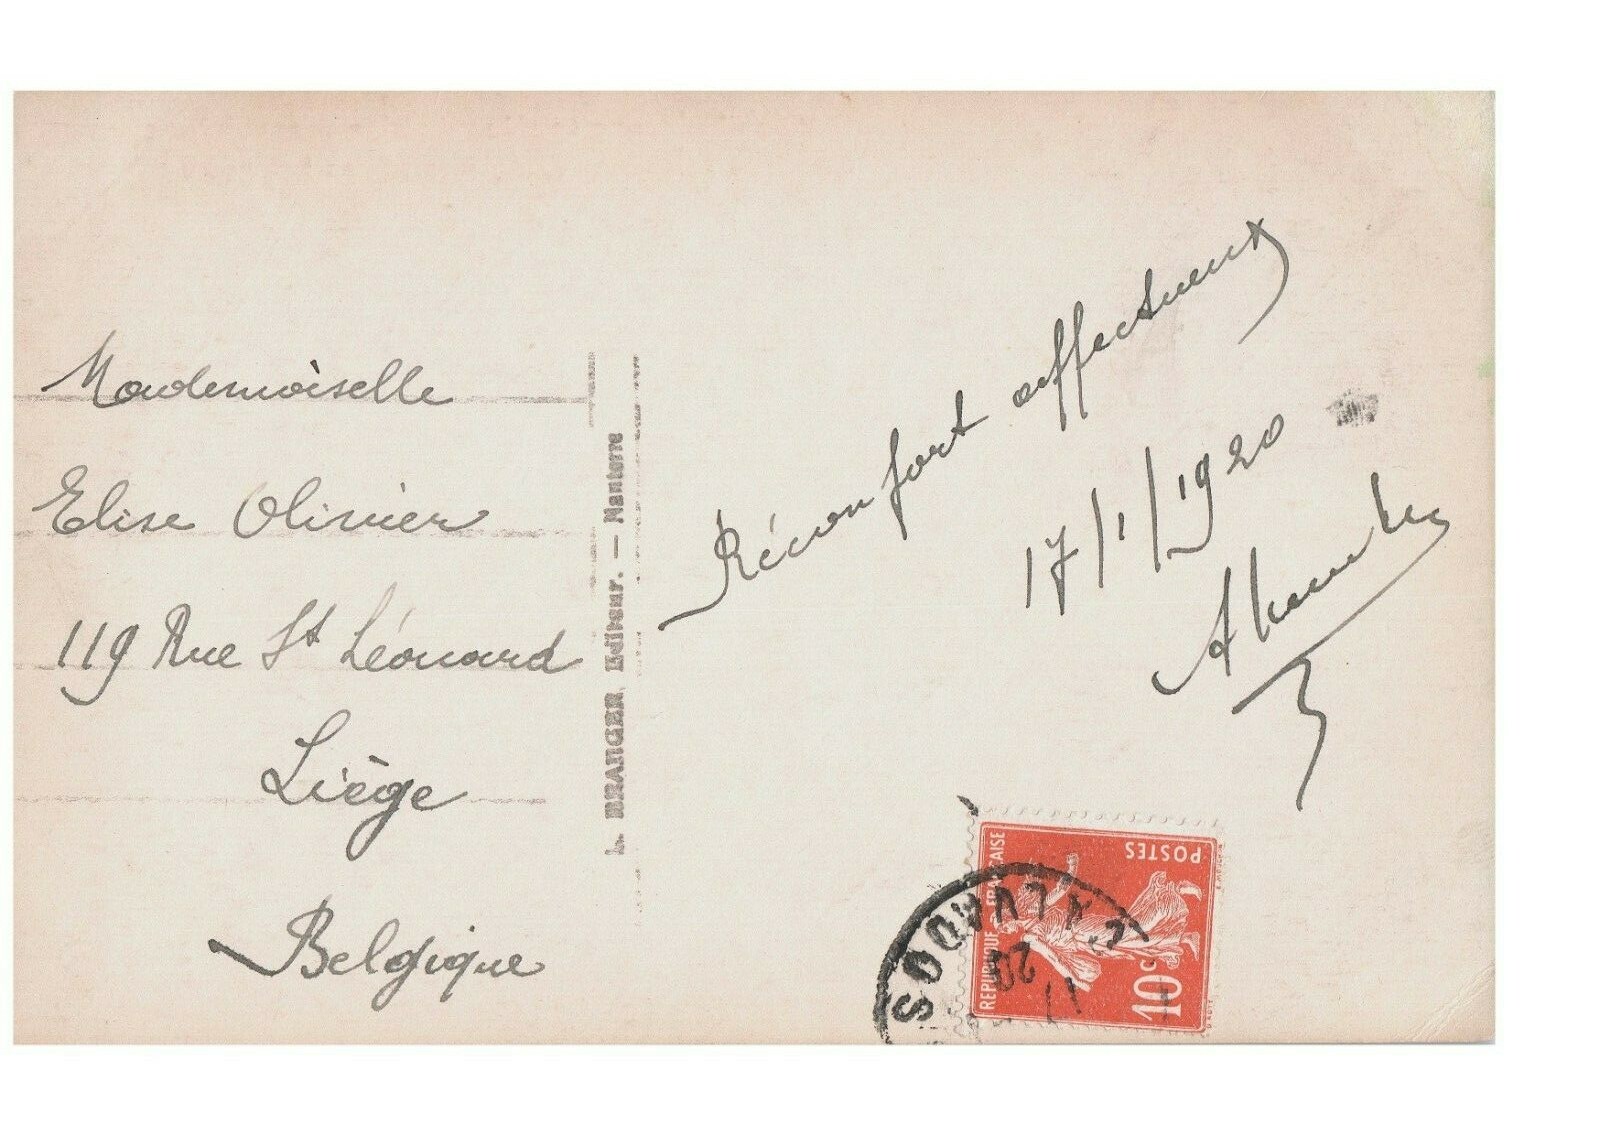 Mademoiselle
Elise Olivier
119 Rue St Léonard
Liège
Belgique
L. BRANGER, Editeur. — Nanterre
Réconfort affectueux
17/1/1920
REPUBLIQUE FRANÇAISE
POSTES
10c
CALVADOS
17
20